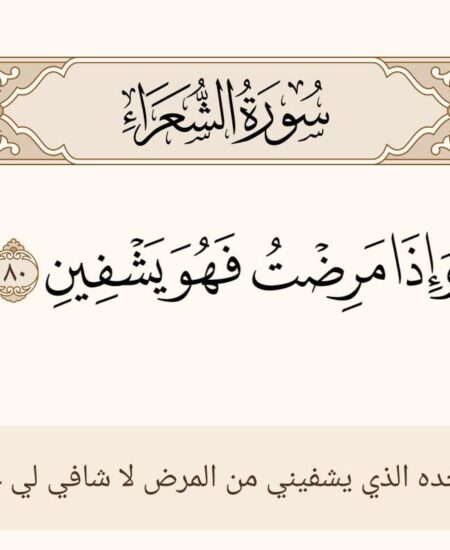 سُورَةُ الشُّعَرَاءِ
وَإِذَا مَرِضْتُ فَهُوَ يَشْفِينِ ٨٠
الذي يشفيني من المرض لا شافي لي